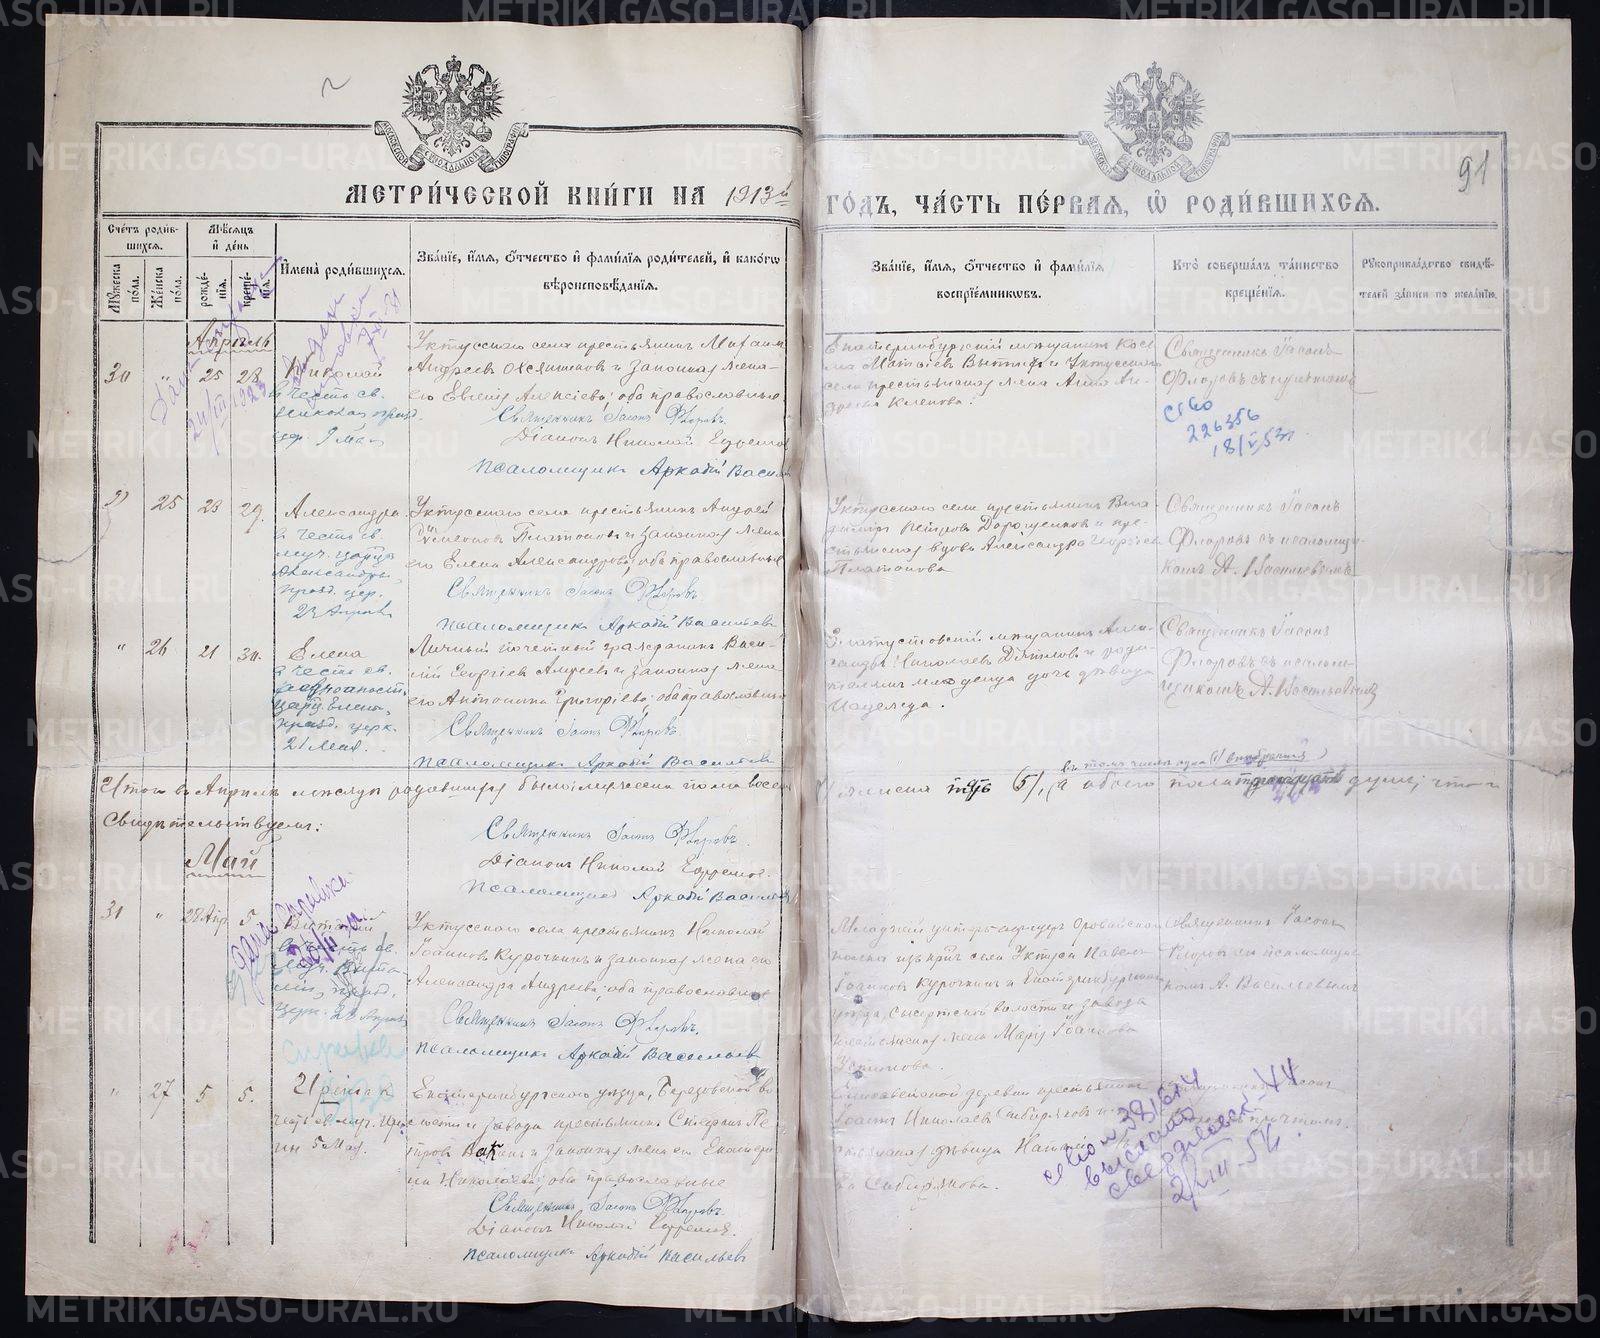 МЕТРИ́ЧЕСКОЙ КНИ́ГИ НА 1913й ГО́ДЪ, ЧА́СТЬ ПЕ́РВАЯ, Ѡ РОДИ́ВШИХСѦ.
91
МОСКОВСКОЙ СѴНОДАЛЬНОЙ ТИПОГРАФІИ
Сче́тъ роди́в-
шихсѧ.
Мꙋ́жеска по́ла.
Же́нска по́ла.
Мѣ́сѧцъ и де́нь
рожде́-
нїѧ.
креще́-
нїѧ.
И҆мена̀ роди́вшихсѧ.
Зва́нїе, и҆́мѧ, ѻ҆́тчество и҆ фами́лїѧ роди́телей, и҆ како́гѡ
вѣроисповѣ́данїѧ.
Зва́нїе, и҆́мѧ, ѻ҆́тчество и҆ фами́лїѧ
воспрїе́мникѡвъ.
Кто̀ соверша́лъ та́инство
креще́нїѧ.
Рꙋкоприкла́дство свидѣ́-
телей за́писи по жела́нїю.
Апрѣль
30 " 25 28
Николай
въ честь св.
Николая
9 мая
Уктусскаго села крестьянинъ Михаилъ
Андреевъ и законная жена
его Евгенія Алексіева; оба православные.
Священникъ Іасонъ Флоровъ.
Діаконъ Николай Ефремовъ
Псаломщикъ Аркадій Васильевъ
Екатеринбургскій мѣщанинъ Кось-
ма Матѳіевъ и Уктусскаго
села крестьянская жена Анна Ан-
дреева Клепова.
Священникъ Іасонъ
Флоровъ съ причтомъ
226356
18/V 53г.
25 23 29.
Александра
въ честь св.
муч. царицы
Александры,
празд. цер.
23 Апрѣля
Уктусскаго села крестьянинъ Андрей
Платоновъ и законная жена
его Елена Александрова; оба православные
Священникъ Іасонъ Флоровъ
Псаломщикъ Аркадій Васильевъ
Уктусскаго села крестьянинъ Вла-
диміръ Петровъ Дорощенковъ и кре-
стьянская вдова Александра Георгіева
Платонова
Священникъ Іасонъ
Флоровъ съ псаломщи-
комъ А. Васильевымъ
" 26 21 30.
Елена
въ честь св.
равноапост.
цариц. Елены,
празд. церк.
21 Мая.
Личный почетный гражданинъ Васи-
лій Георгіевъ Андреевъ и законная жена
его Антонина Григоріева; оба православные
Священникъ Іасонъ Флоровъ
Псаломщикъ Аркадій Васильевъ
Златоустовскій мѣщанинъ Алек-
сандръ Николаевъ Дятловъ и роди-
телямъ младенца дочь дѣвица
Надежда.
Священникъ Іасонъ
Флоровъ съ псалом-
щикомъ А. Васильевымъ
Итого въ Апрѣлѣ мѣсяцѣ родившихся было: мужеска пола восемь
женска пять (5), а обоего пола душъ; что и
Свидѣтельствуемъ:
Священникъ Іасонъ Флоровъ.
Діаконъ Николай Ефремовъ.
Псаломщикъ Аркадій Васильевъ
Май
31 " 28 Апр 5.
Виталій
въ честь св.
муч. Вита-
лія, празд.
церк. 28 Апрѣля
Уктусскаго села крестьянинъ Николай
Іоанновъ Курочкинъ и законная жена его
Александра Андреева; оба православные
Священникъ Іасонъ Флоровъ.
Псаломщикъ Аркадій Васильевъ
Младшій унтеръ-офицеръ Оровайскаго
полка изъ крест. села Уктуса Павелъ
Іоанновъ Курочкинъ и Екатеринбургскаго
уѣзда, Сысертской волости и завода
крестьянская жена Марія Іоаннова
Устинова.
Священникъ Іасонъ
Флоровъ съ псаломщи-
комъ А. Васильевымъ
" 27 5 5.
Ирина въ
честь св. муч. Ири-
ны 5 Мая.
Екатеринбургскаго уѣзда, Березовской во-
лости и завода крестьянинъ Стефанъ Пе-
тровъ и законная жена его Екатери-
на Николаева; оба православные
Священникъ Іасонъ Флоровъ.
Діаконъ Николай Ефремовъ.
Псаломщикъ Аркадій Васильевъ
Елисаветской деревни крестьянинъ
Іоаннъ Николаевъ Сибиряковъ и
дѣвица
Сибирякова.
381614
выслано
Свердловск-44
2/III-54.
METRIKI.GASO-URAL.RU